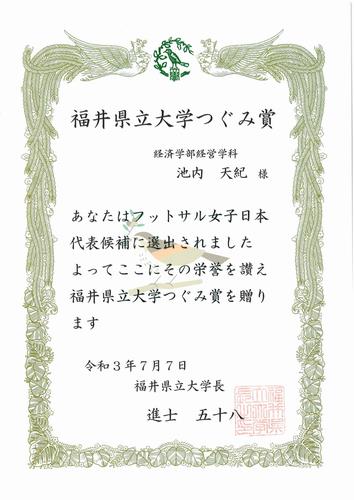 福井県立大学つぐみ賞
経済学部経営学科
池内 天紀 様
あなたはフットサル女子日本
代表候補に選出されました
よってここにその栄誉を讃え
福井県立大学つぐみ賞を贈り
ます
令和3年7月7日
福井県立大学長
進士 五十八